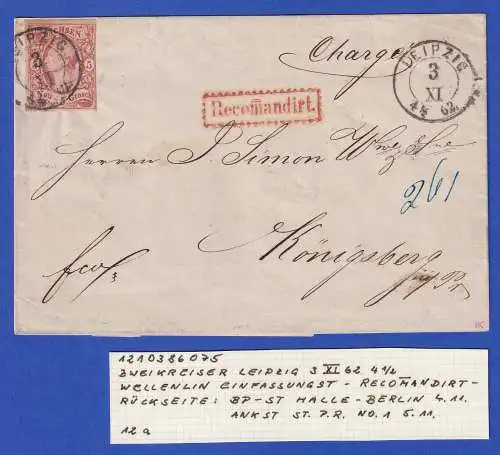 SACHSEN
3
LEIPZIG
3
Chargé
LEIPZIG
3
XI
4½ 62.
Recom̄andirt.
Herren P. Simon Wwe &
261
Königsberg
fco
in Pr
1210386075
ZWEIKREISER LEIPZIG 3 XI 62 4½
WELLENLIN EINFASSUNGST - RECOM̄ANDIRT-
RÜCKSEITE: BP-ST HALLE-BERLIN 4.11.
ANKST ST. P.R. NO.1 5.11.
12a